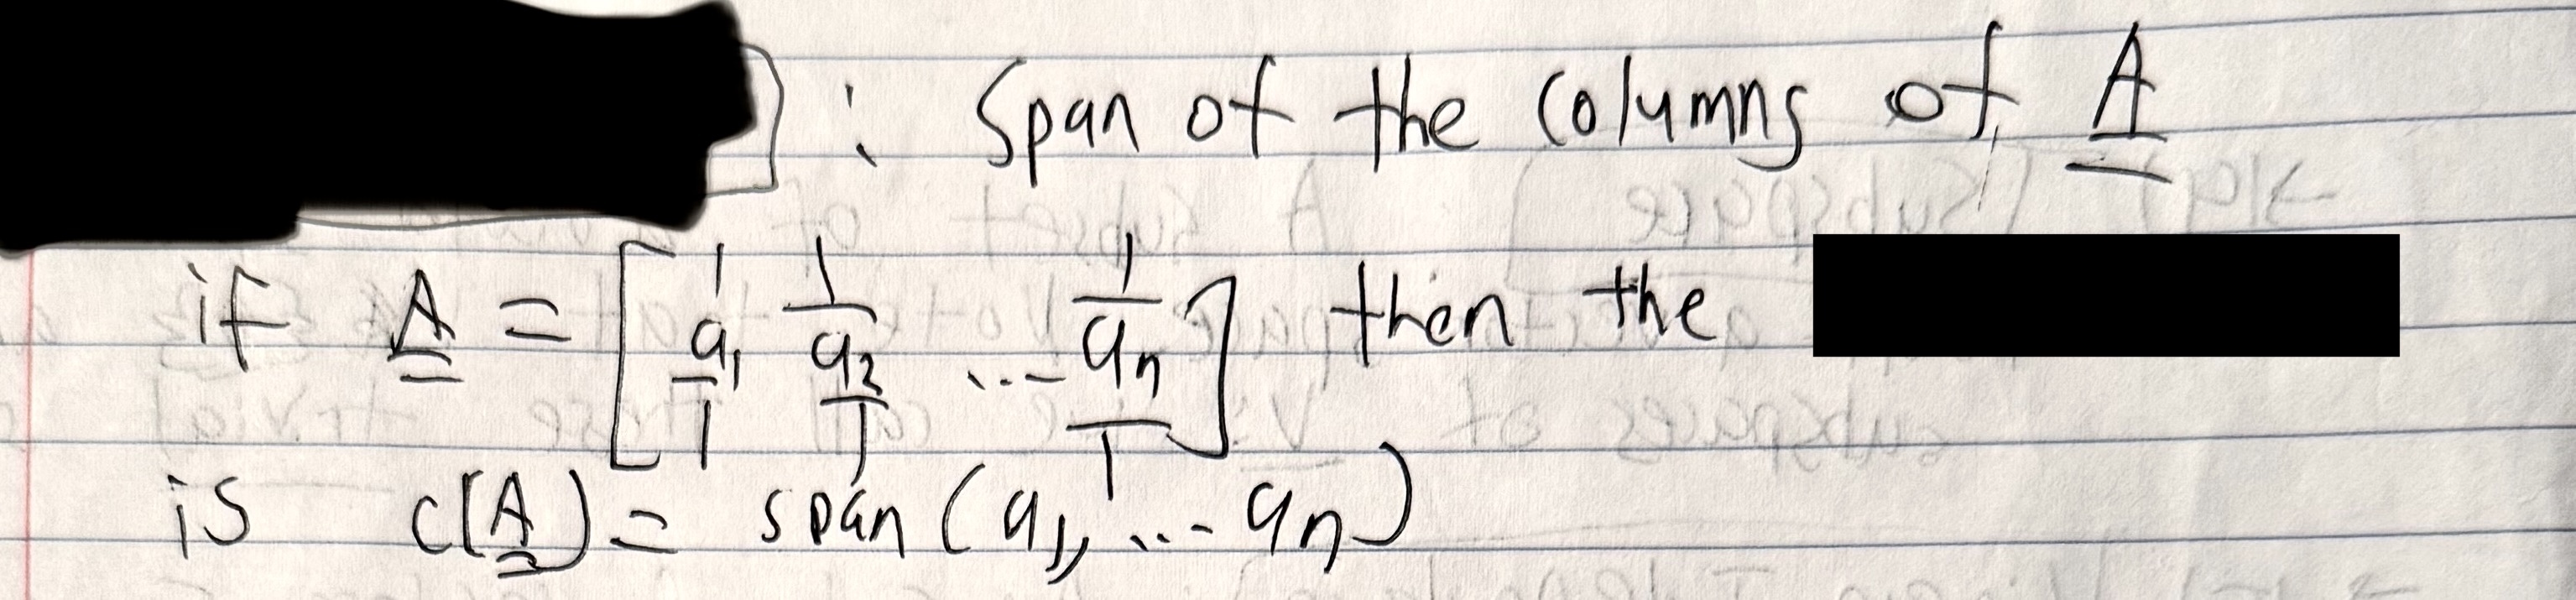 : Span of the columns of A
if A = [a₁ a₂ ... aₙ] then the
is C(A) = span (a₁, ... aₙ)